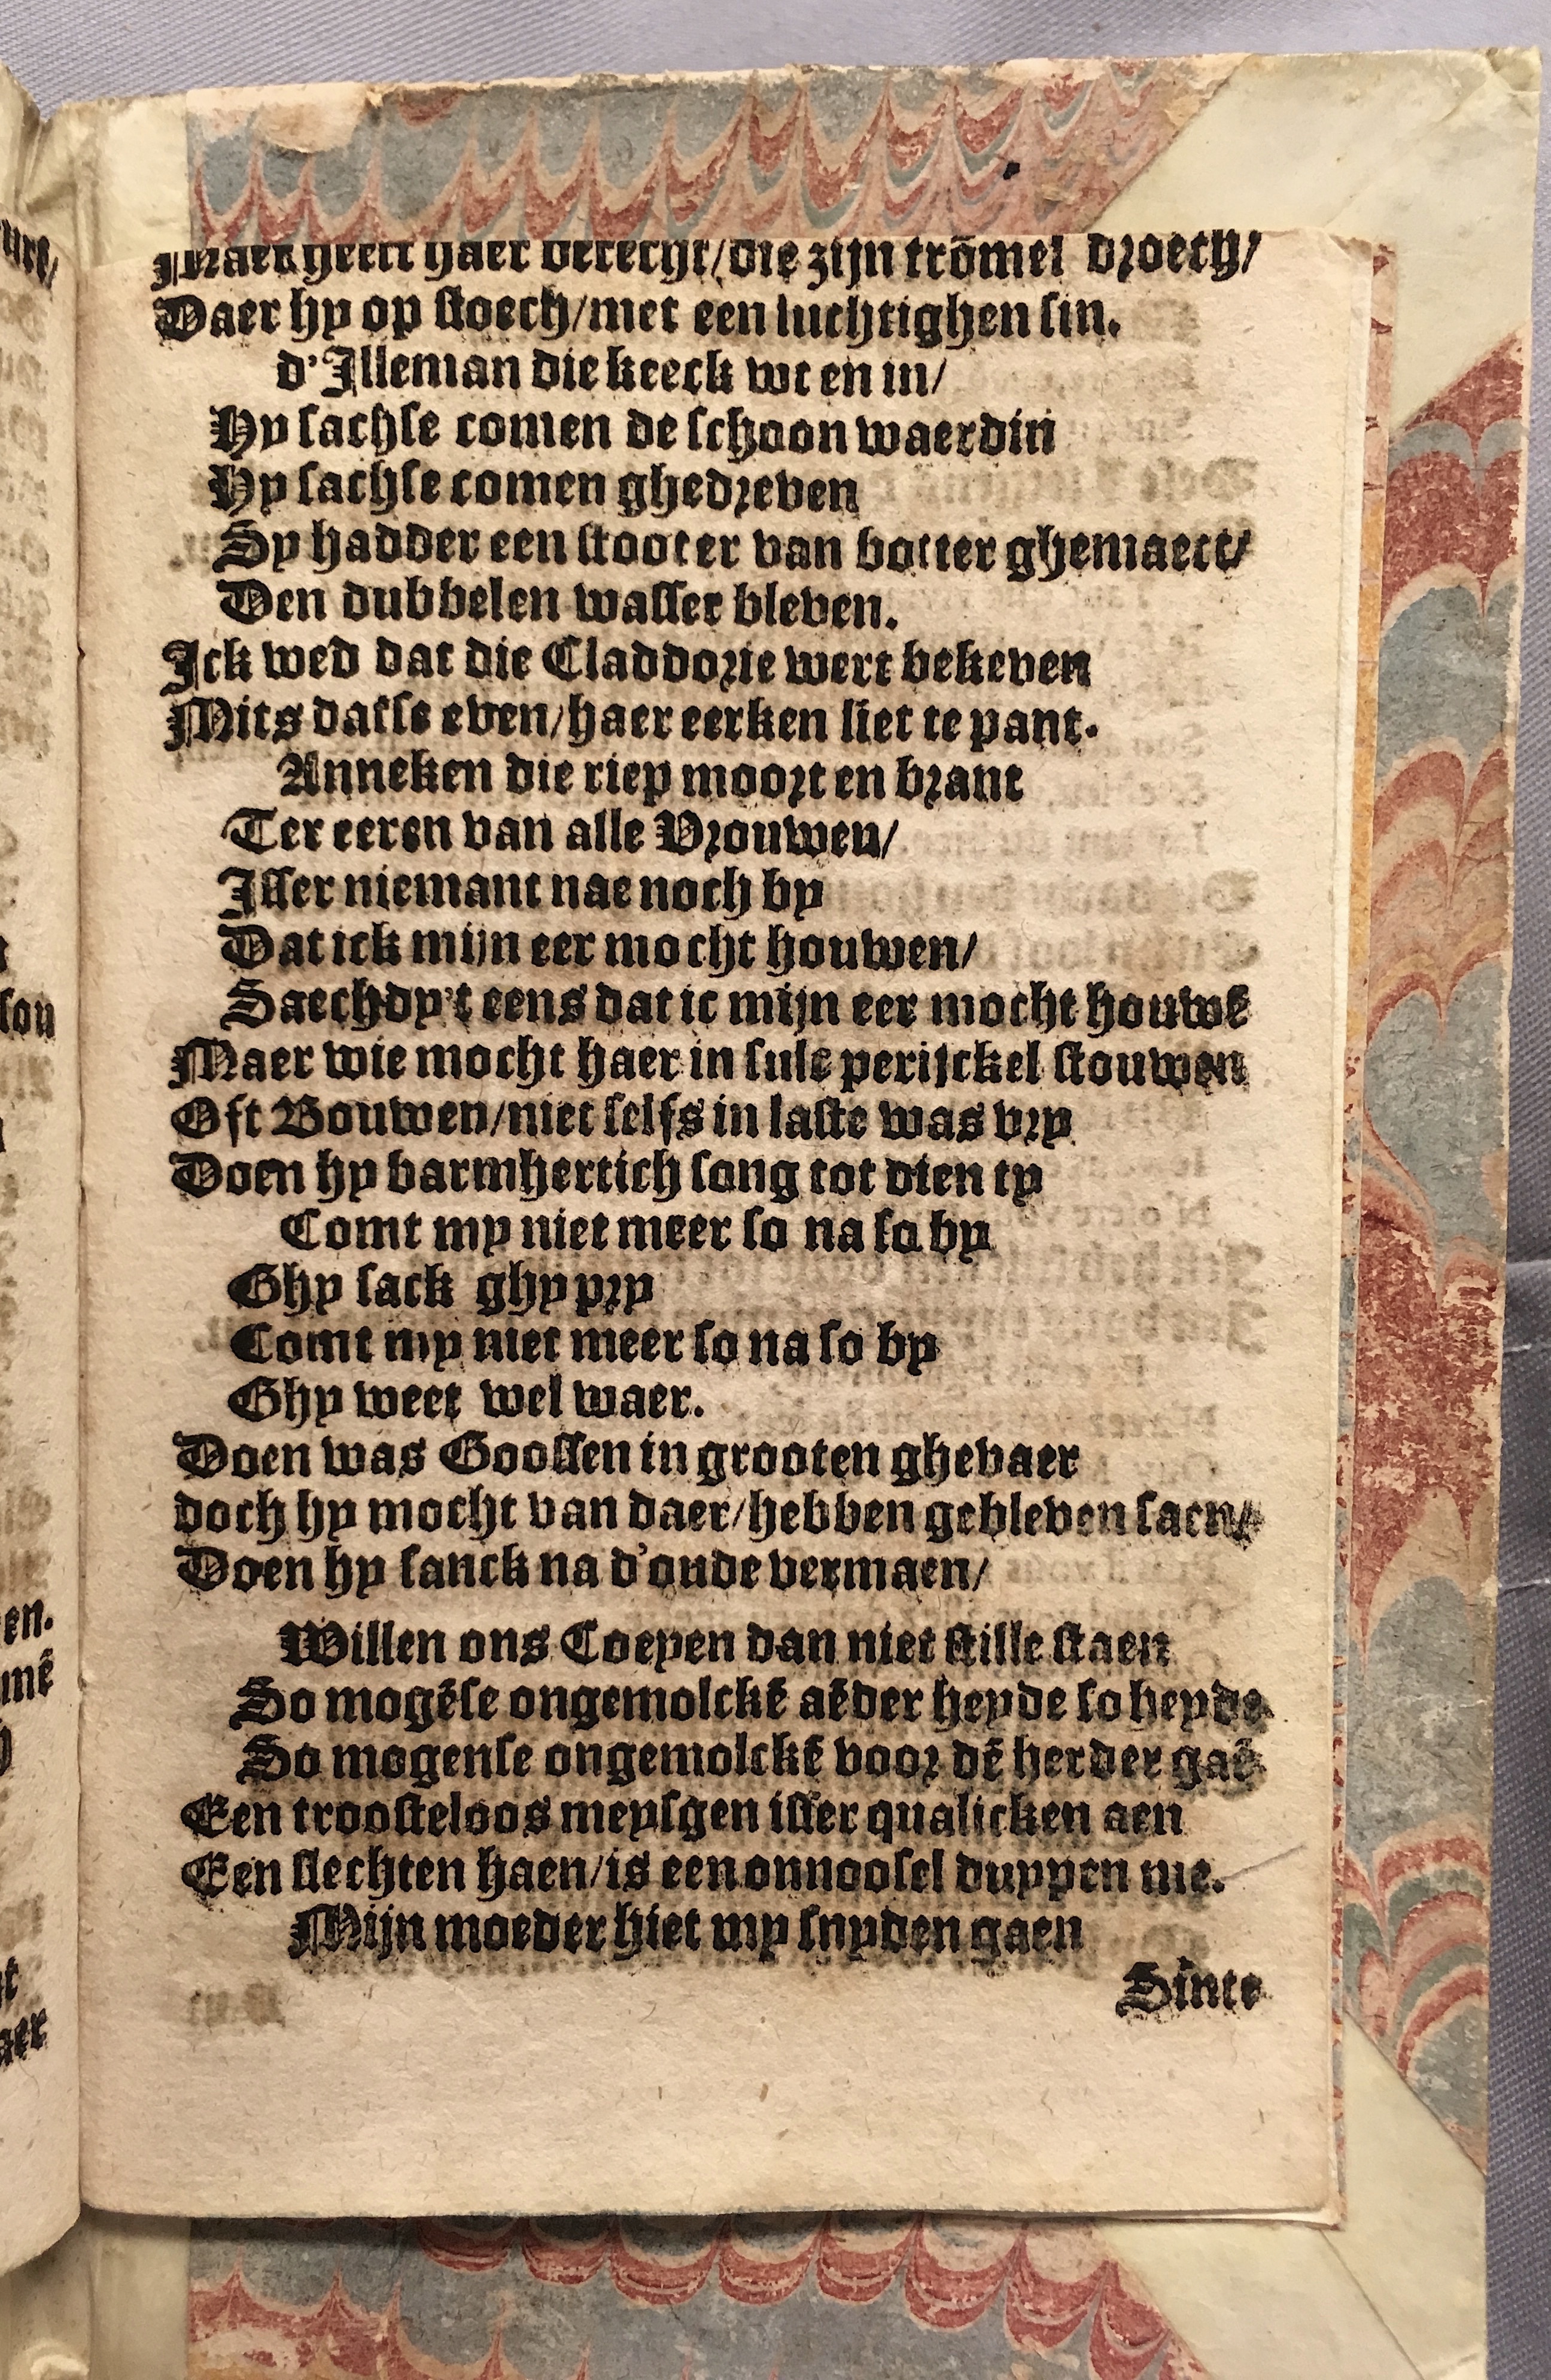 Maer heeft haer verecht/die zijn trõmel droech/
Daer hy op sloech/met een luchtighen sin.
d'Illeman die keeck wt en in/
Hy sachse comen de schoon waerdin
Hy sachse comen ghedreven
Sy hadder een stooter van botter ghemaect/
Den dubbelen wasser bleven.
Ick wed dat die Claddorie wert bekeven
Mits datse even/haer eerken liet te pant.
Anneken die riep moort en brant
Ter eeren van alle Vrouwen/
Isser niemant nae noch by
Dat ick mijn eer mocht houwen/
Saechdy't eens dat ic mijn eer mocht houwẽ
Maer wie mocht haer in sulc perijckel stouwen
Oft Bouwen/niet selfs in laste was vry
Doen hy barmhertich song tot dien ty
Comt my niet meer so na so by
Ghy sack ghy pry
Comt my niet meer so na so by
Ghy weet wel waer.
Doen was Goossen in grooten ghevaer
doch hy mocht van daer/hebben gebleven saen/
Doen hy sanck na d'oude vermaen/
Willen ons Coeyen dan niet stille staen
So mogẽse ongemolckẽ aẽder heyde so heyde
So mogense ongemolckẽ voor dẽ herder gaẽ
Een troosteloos meysgen isser qualicken aen
Een slechten haen/is een onnoosel duypen nie.
Mijn moeder hiet my snyden gaen
Sinte